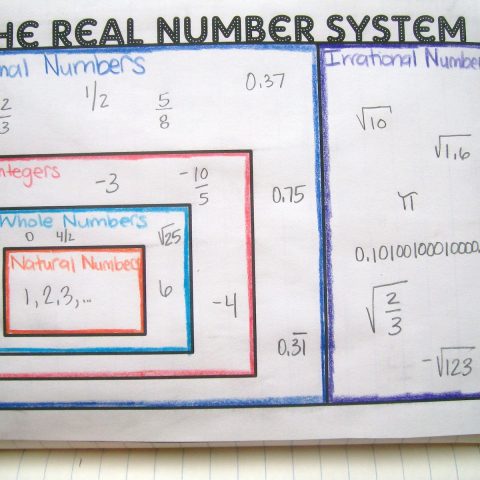 HE REAL NUMBER SYSTEM
nal Numbers
2/3
1/2
5/8
0.37
ntegers
-3
-10/5
0.75
Whole Numbers
0
4/2
√25
Natural Numbers
1, 2, 3, ...
6
-4
0.3̅1̅
Irrational Number
√10
√1.6
π
0.10100100010000
√2/3
-√123